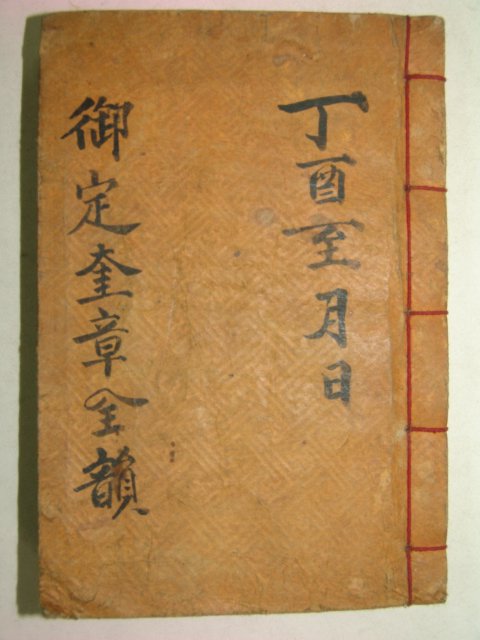 丁酉至月日
御定奎章全韻